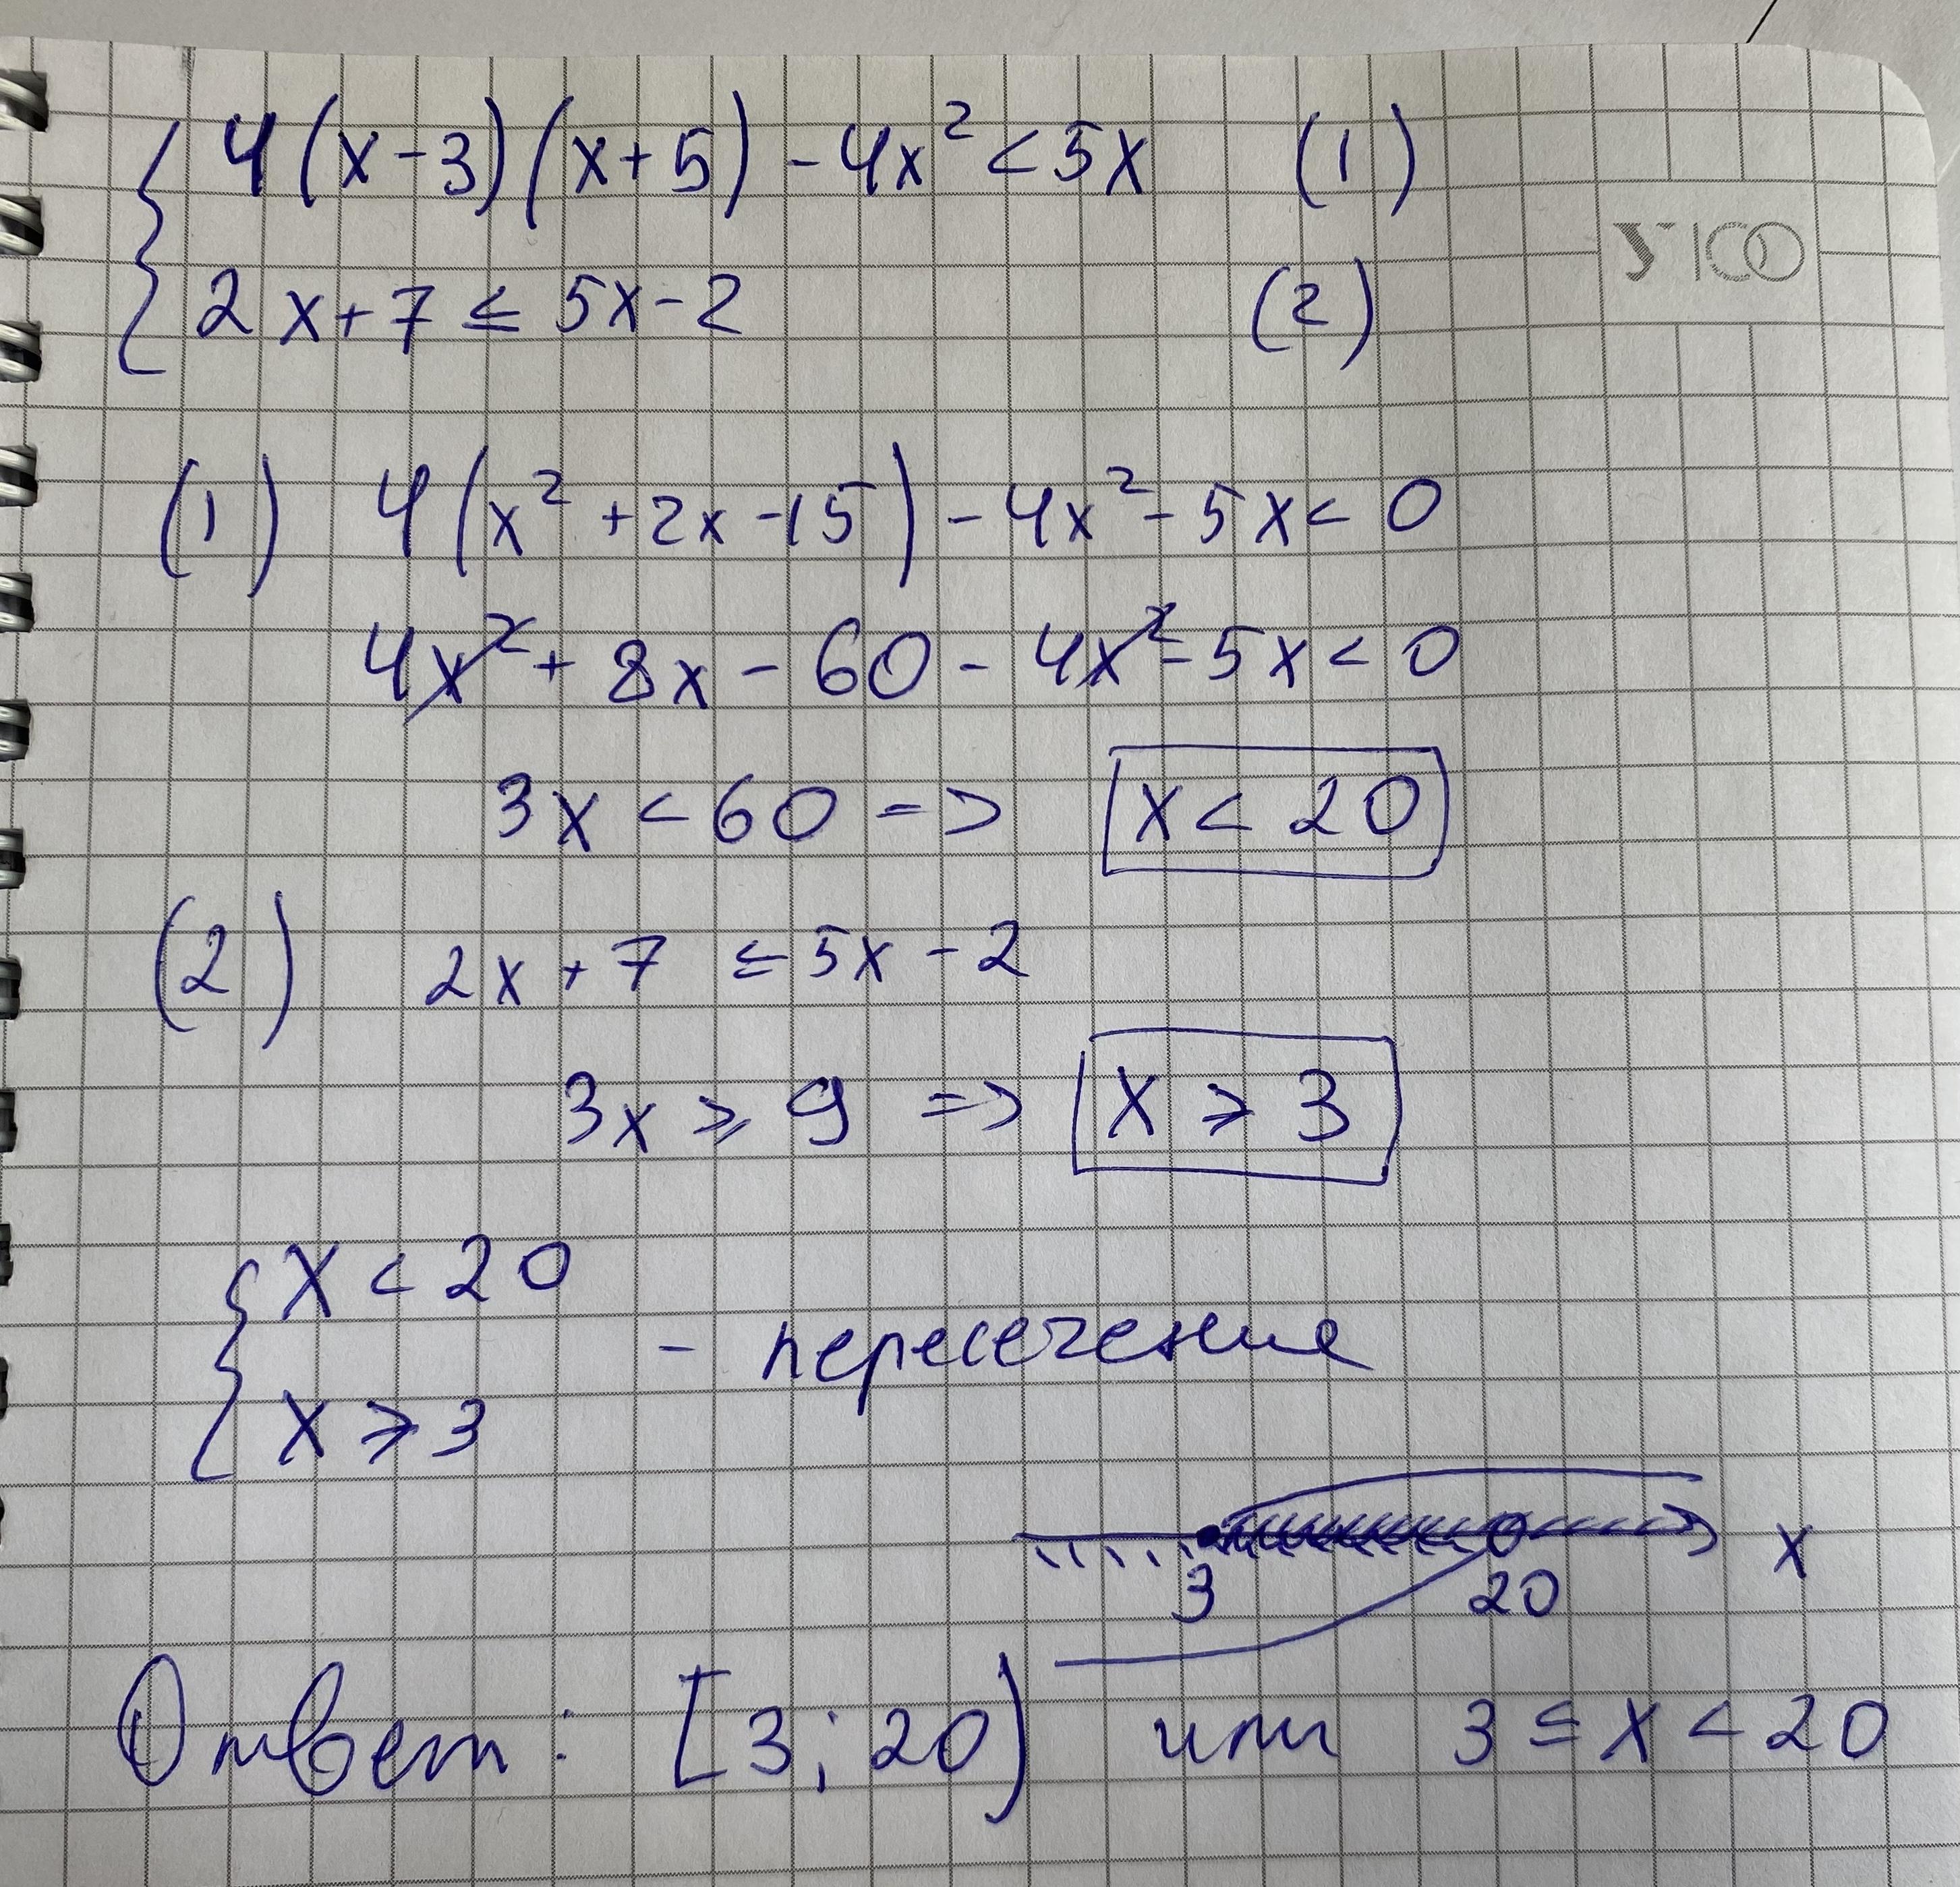 4(x-3)(x+5) - 4x² < 5x (1)
2x+7 ≤ 5x-2 (2)
У100
(1) 4(x² + 2x - 15) - 4x² - 5x < 0
4x² + 8x - 60 - 4x² - 5x < 0
3x < 60 => x < 20
(2) 2x + 7 ≤ 5x - 2
3x ⩾ 9 => x ⩾ 3
x < 20
- пересечение
x ⩾ 3
3 20 x
Ответ: [3; 20) или 3 ≤ x < 20